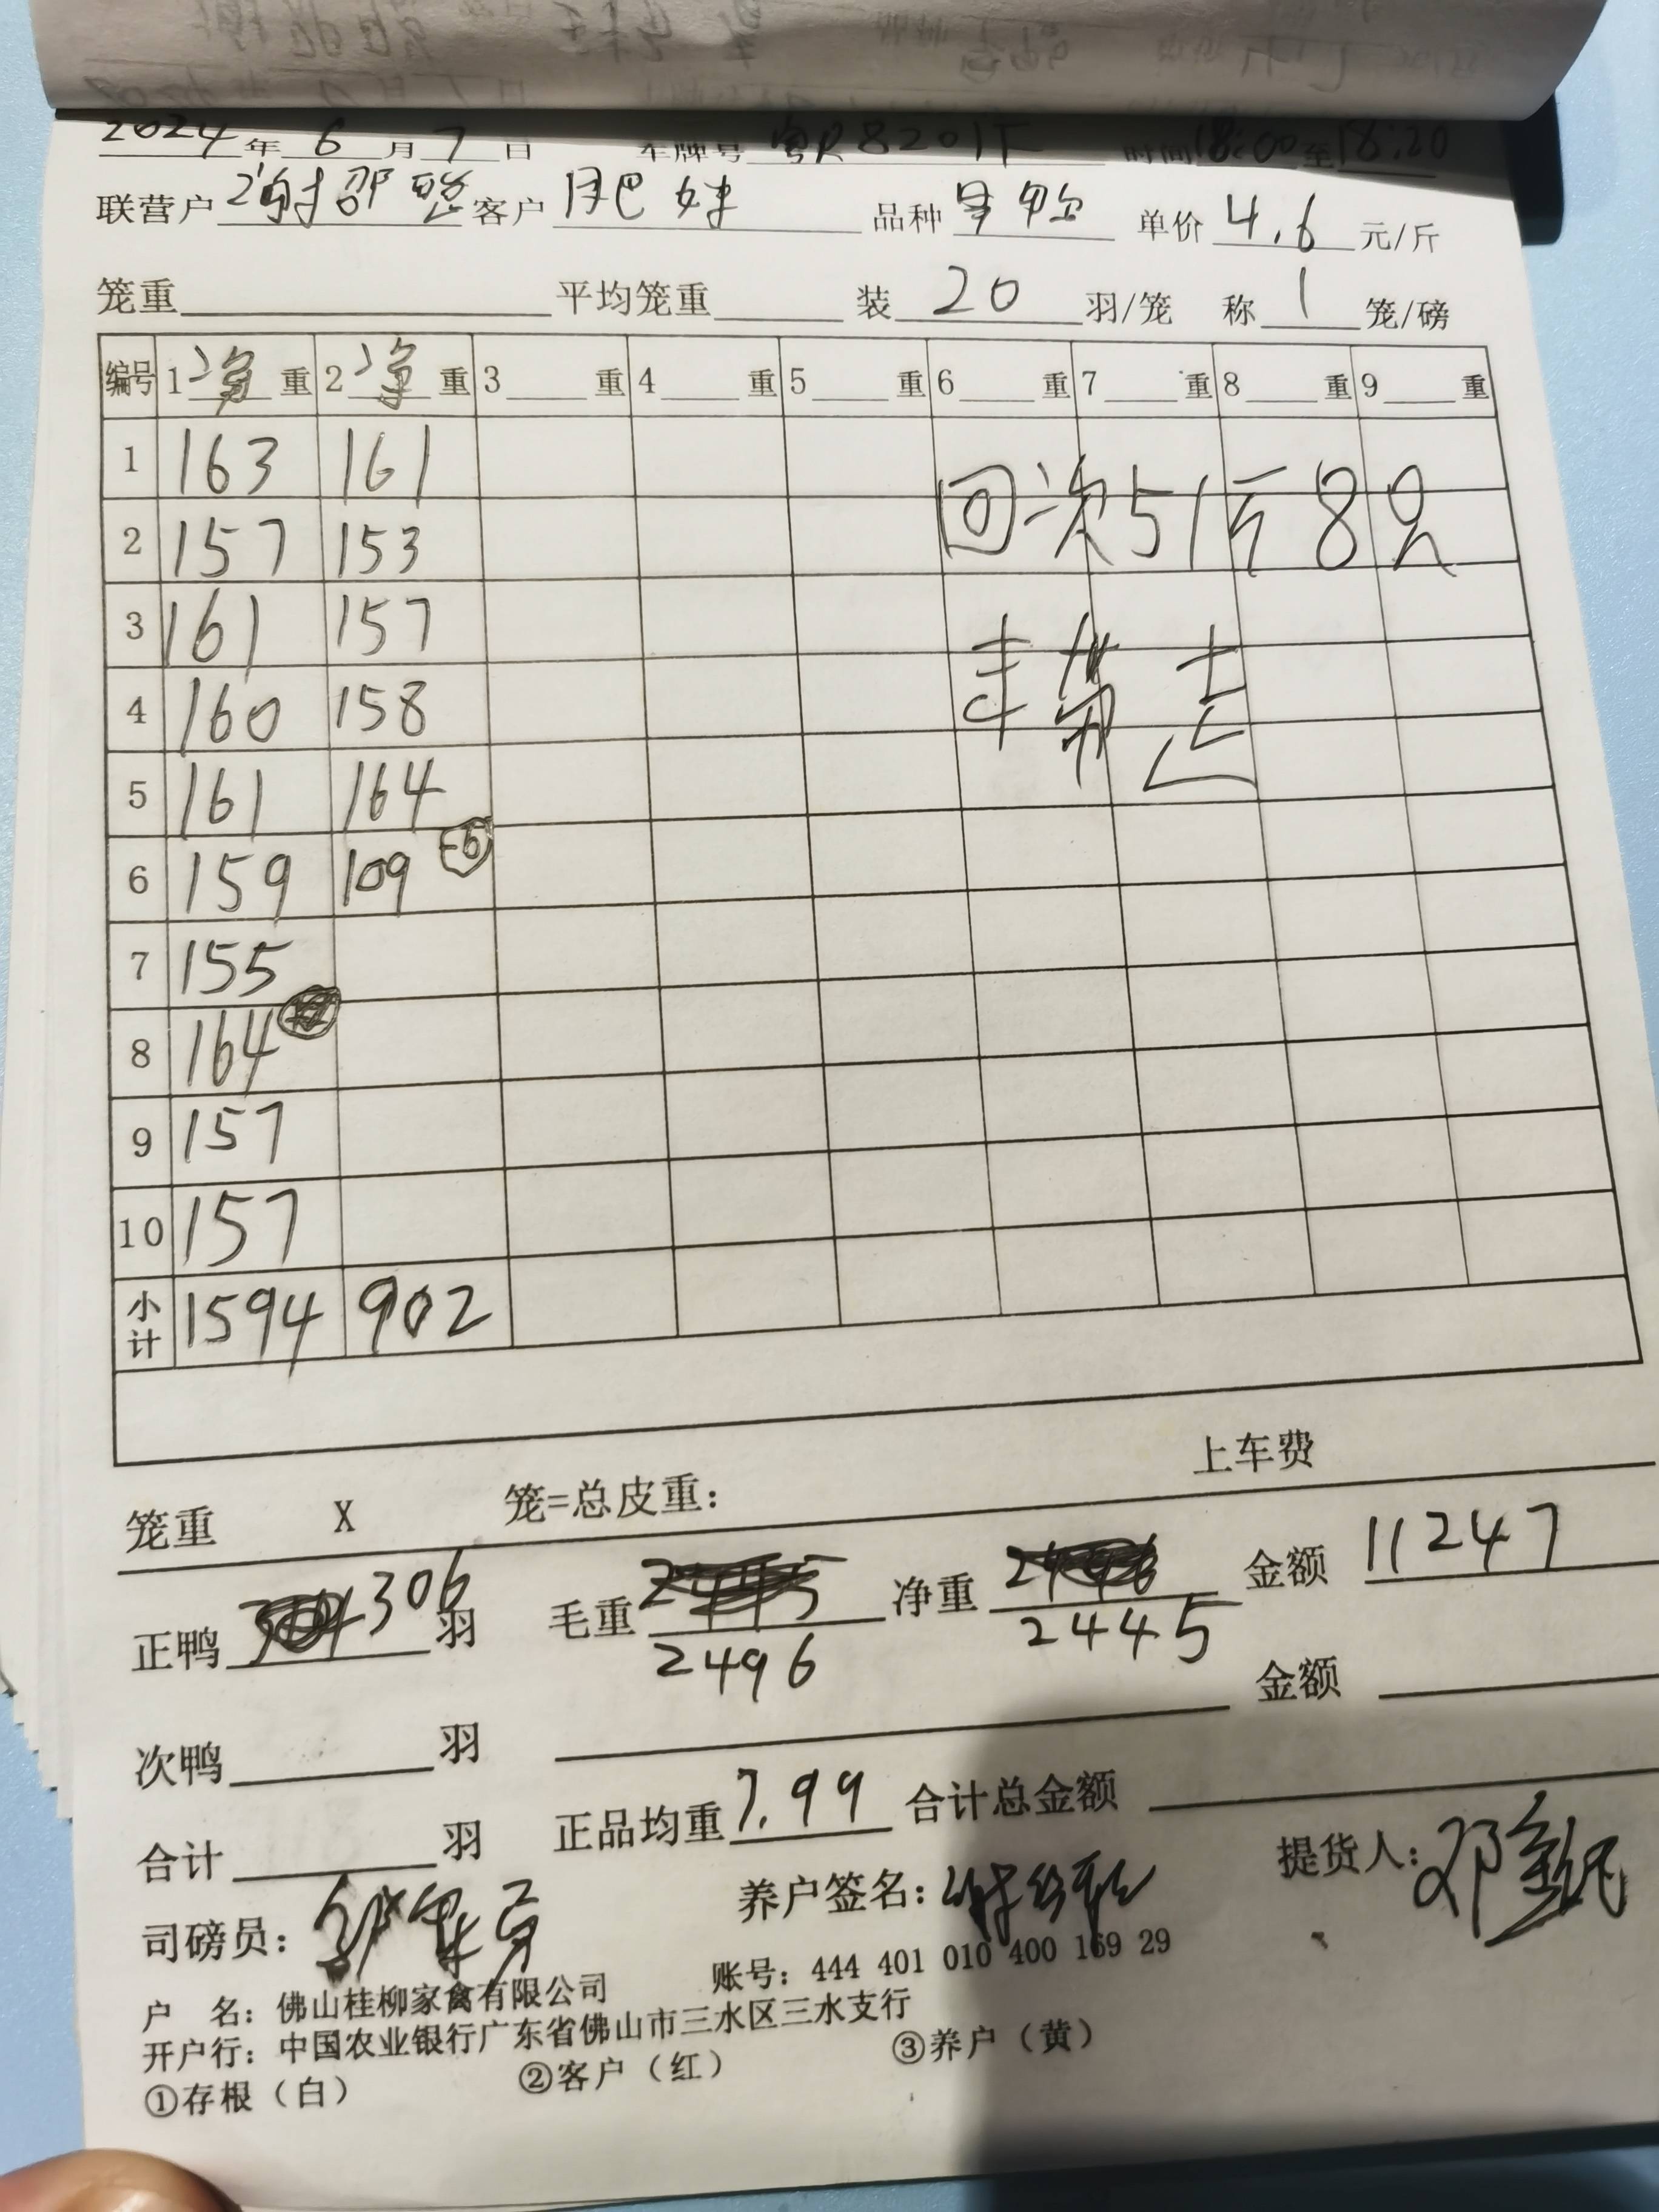 2024年6月7日 车牌号 粤R8201F 时间18:00至18:20
联营户 谢邵 客户 肥妹 品种 单价 4.6 元/斤
笼重 平均笼重 装 20 羽/笼 称 1 笼/磅
编号 1 净 重 2 净 重 3 重 4 重 5 重 6 重 7 重 8 重 9 重
1 163 161
回次51斤8只
2 157 153
3 161 157
未带走
4 160 158
5 161 164
6 159 109 -6
7 155
8 164
9 157
10 157
小计 1594 902
上车费
笼重 X 笼=总皮重:
正鸭 306 羽 毛重 2496 净重 2445 金额 11247
次鸭 羽 金额
合计 羽 正品均重 7.99 合计总金额
司磅员: 养户签名: 提货人:
户 名: 佛山桂柳家禽有限公司 账号: 444 401 010 400 169 29
开户行: 中国农业银行广东省佛山市三水区三水支行
①存根（白） ②客户（红） ③养户（黄）